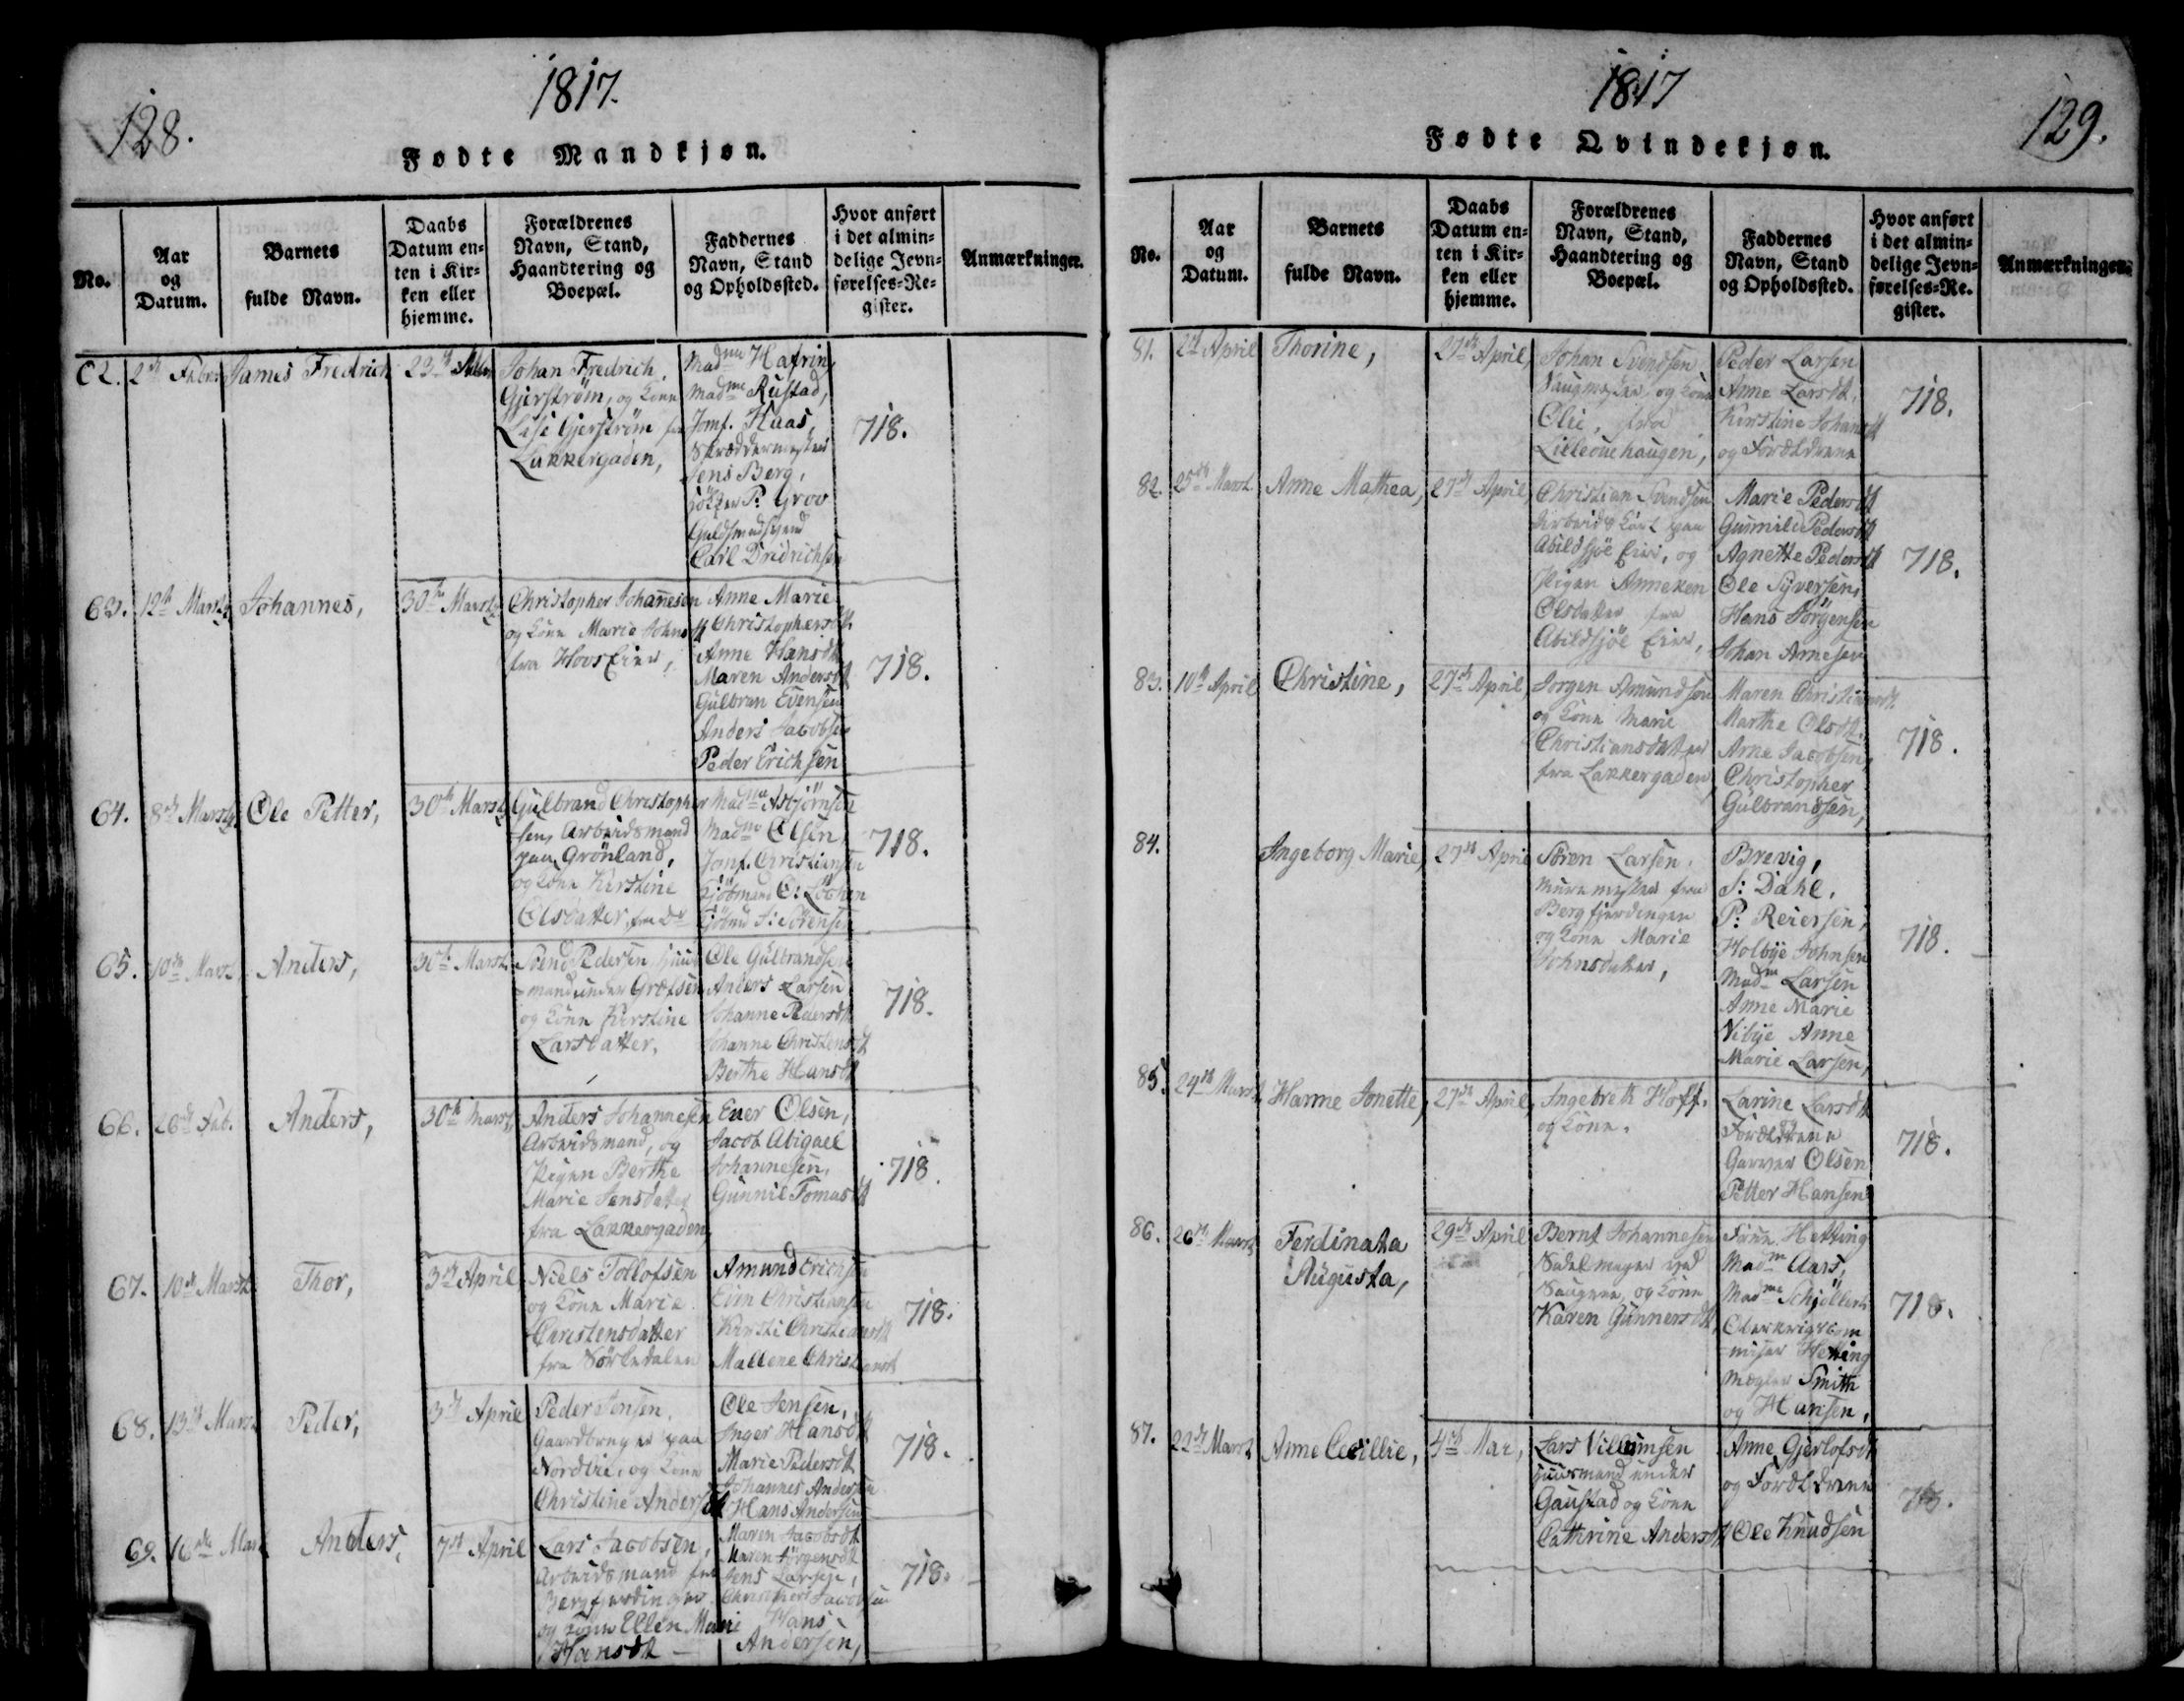 128.
1817.
Fødte Mandkjøn.
No.
Aar
og
Datum.
Barnets
fulde Navn.
Daabs
Datum en-
ten i Kir-
ken eller
hjemme.
Forældrenes
Navn, Stand,
Haandtering og
Boepæl.
Faddernes
Navn, Stand
og Opholdssted.
Hvor anført
i det almin-
delige Jevn-
førelses-Re-
gister.
Anmærkninger.
62.
James Fredrich
Johan Fredrich
Gjerström, og Kone
Lise Gjerström fra
Lakkergaden,
Mad^me Hafrin,
Mad^me Rustad,
Jomf. Haas,
Skræddermester
Jens Berg,
P: Grov
Guldsmedsvend
Carl Dridrichsen
718.
63.
12te Marts
Johannes,
30te Marts
Christopher Johanesen
og Kone Marie Johnsdt
fra Hovs Eier,
Anne Marie
Christophersdt.
Anne Hansdt
Maren Andersdt
Gulbran Evensen
Anders Jacobsen
Peder Erichsen
718.
64.
8de Marts
Ole Petter,
30te Marts
Gulbrand Christopher
sen, Arbeidsmand
paa Grönland,
og Kone Kirstine
Olsdatter, fra Do
Mad^me Asbjörnsen
Mad^me Olsen,
Jomf. Christiansen
Kjöbmand C:
S: Sörensen
718.
65.
10de Marts
Anders,
30te Marts
Svend Pedersen Huus
mand under Grefsen
og Kone Kirstine
Larsdatter,
Ole Gulbrandsen
Anders Larsen
Johanne Pedersdt
Johanne Christensdt
Berthe Hansdt
718.
66.
26de Feb.
Anders,
30te Marts
Anders Johannesen
Arbeidsmand, og
Pigen Berthe
Marie Jensdatter
fra Lakkergaden
Ever Olsen,
Jacob Abigael
Johannesen,
Gunnil Tomasdt
718.
67.
10de Marts
Thor,
3de April
Niels Tollofsen
og Kone Marie
Christensdatter
fra Sörkedalen
Amund Erichsen
Even Christiansen
Kirsti Christiansdt
Mallene Christiansdt
718.
68.
13de Marts
Peder,
3de April
Peder Jensen,
Gaardbruger paa
Nordlie, og Kone
Christine Andersdt
Ole Jensen,
Inger Hansdt
Marie Pedersdt
Johannes Andersen
Hans Andersen
718.
69.
16de Marts
Anders,
7de April
Lars Jacobsen,
Arbeidsmand fra
Bergfjerdingen
og Kone Ellen Marie
Hansdt
Maren Jacobsdt
Maren Jörgensdt
Jens Larsen,
Christopher Jacobsen
Hans
Andersen,
718.
1817
129.
Fødte Qvindekjøn.
No.
Aar
og
Datum.
Barnets
fulde Navn.
Daabs
Datum en-
ten i Kir-
ken eller
hjemme.
Forældrenes
Navn, Stand,
Haandtering og
Boepæl.
Faddernes
Navn, Stand
og Opholdssted.
Hvor anført
i det almin-
delige Jevn-
førelses-Re-
gister.
Anmærkninger.
81.
2de April
Thorine,
27de April,
Johan Svendsen
Saugmester, og Kone
Olie, fra
Lilleouehaugen,
Peder Larsen
Anne Larsdt,
Kirstine Johansdt
og Forældrene
718.
82.
25de Marts
Anne Mathea,
27de April,
Christian Svendsen
Arbeidskarl paa
Abildsjöe Eier, og
Pigen Anneken
Olsdatter fra
Abildsjöe Eier,
Marie Pedersdt
Gunnild Pedersdt
Agnette Pedersdt
Ole Syversen,
Hans Jörgensen
Johan Arnesen
718.
83.
10de April
Christine,
27de April,
Jorgen Amundsen
og Kone Marie
Christiansdatter
fra Lakkergaden,
Maren Christiansdt.
Marthe Olsdt.
Arne Jacobsen,
Christopher
Gulbrandsen,
718.
84.
Ingeborg Marie,
27de April
Sören Larsen,
Murmester fra
Bergfjerdingen
og Kone Marie
Johnsdatter,
Brevig,
S: Dahl,
P: Reiersen,
Holbye Johnsen
Mad^m Larsen
Anne Marie
Vibye Anne
Marie Larsen,
718.
85.
24de Marts
Hanne Jonette,
27de April,
Ingebreth Hoff,
og Kone,
Larine Larsdt
Forældrene
Garver Olsen
Petter Hansen
718.
86.
26de Marts
Ferdinata
Augusta,
29de April
Bernt Johannesen
Sadelmager ved
Saugene, og Kone
Karen Gunnersdt,
Hetting
Mad^m Aars,
Mad^me Schjöllert
Oberkrigscom
misær Hetting
Mægler Smith
og Hansen,
718.
87.
22de Marts
Anne Cecillie,
4de Mai,
Lars Villumsen
Huusmand under
Gaustad og Kone
Cathrine Andersdt
Anne Gjerlofsdt
og Forældrene
Ole Knudsen
718.